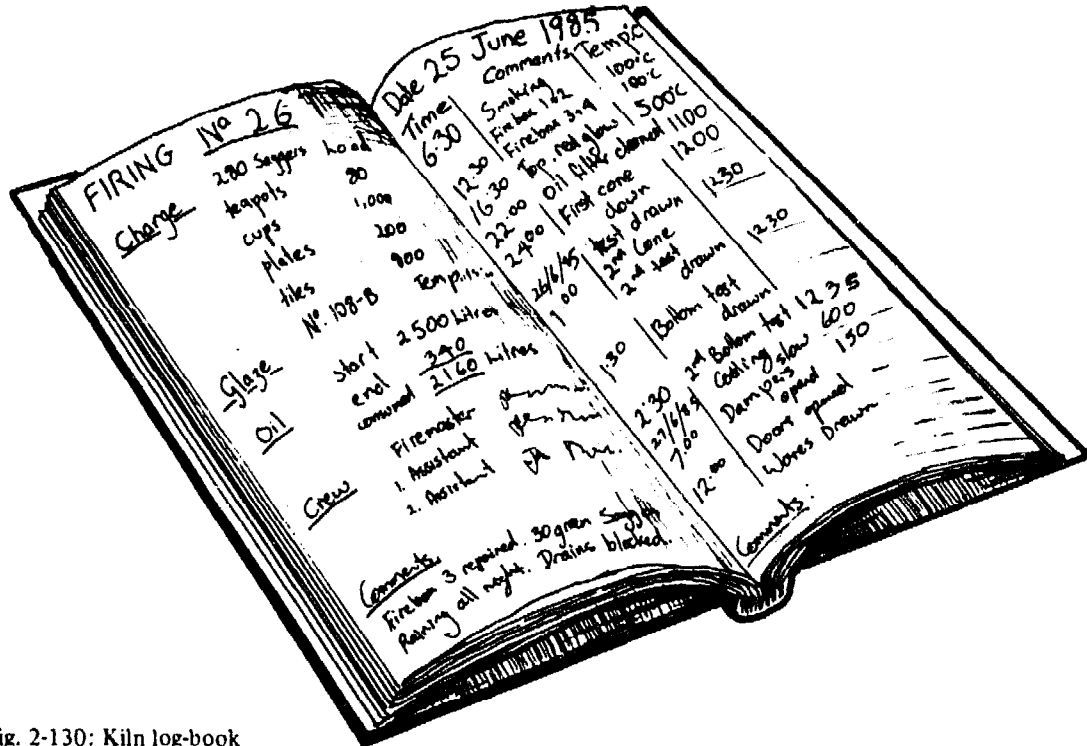 FIRING Nº 26
Charge 280 Saggers Load
teapots 80
cups 1,000
plates 200
tiles 900
Glaze Nº. 108-B
Oil Start 2500 Litres
end 340
consumed 2160 Litres
Crew Firemaster
1. Assistant
2. Assistant
Comments
Firebox 3 repaired. 30 green Saggers
Raining all night. Drains blocked.
Date 25 June 1985
Time Comments Temp°C
6:30 Smoking 100°C
Firebox 1&2 100°C
12:30 Firebox 3,4 500°C
16:30 Top. red glow 1100
22:00 Oil filter cleaned 1200
24:00 First cone down
26/6/85 test drawn 1230
1:00 2nd Cone
2nd test drawn 1230
1:30 Bottom test drawn
2:30 2nd Bottom test 1235
27/6/85 Cooling slow 600
7:00 Dampers opened 150
12:00 Doors opened
Wares Drawn
Comments:
ig. 2-130: Kiln log-book